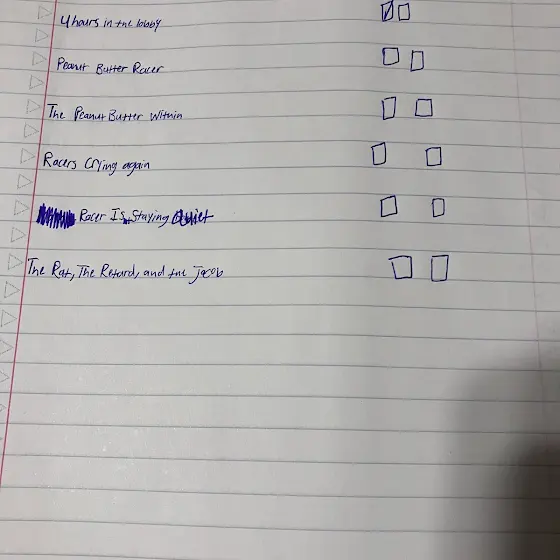 4 hours in the lobby
Peanut Butter Racer
The Peanut Butter Within
Racers Crying again
Racer Isnt Staying Quiet
The Rat, The Retard, and the Jacob